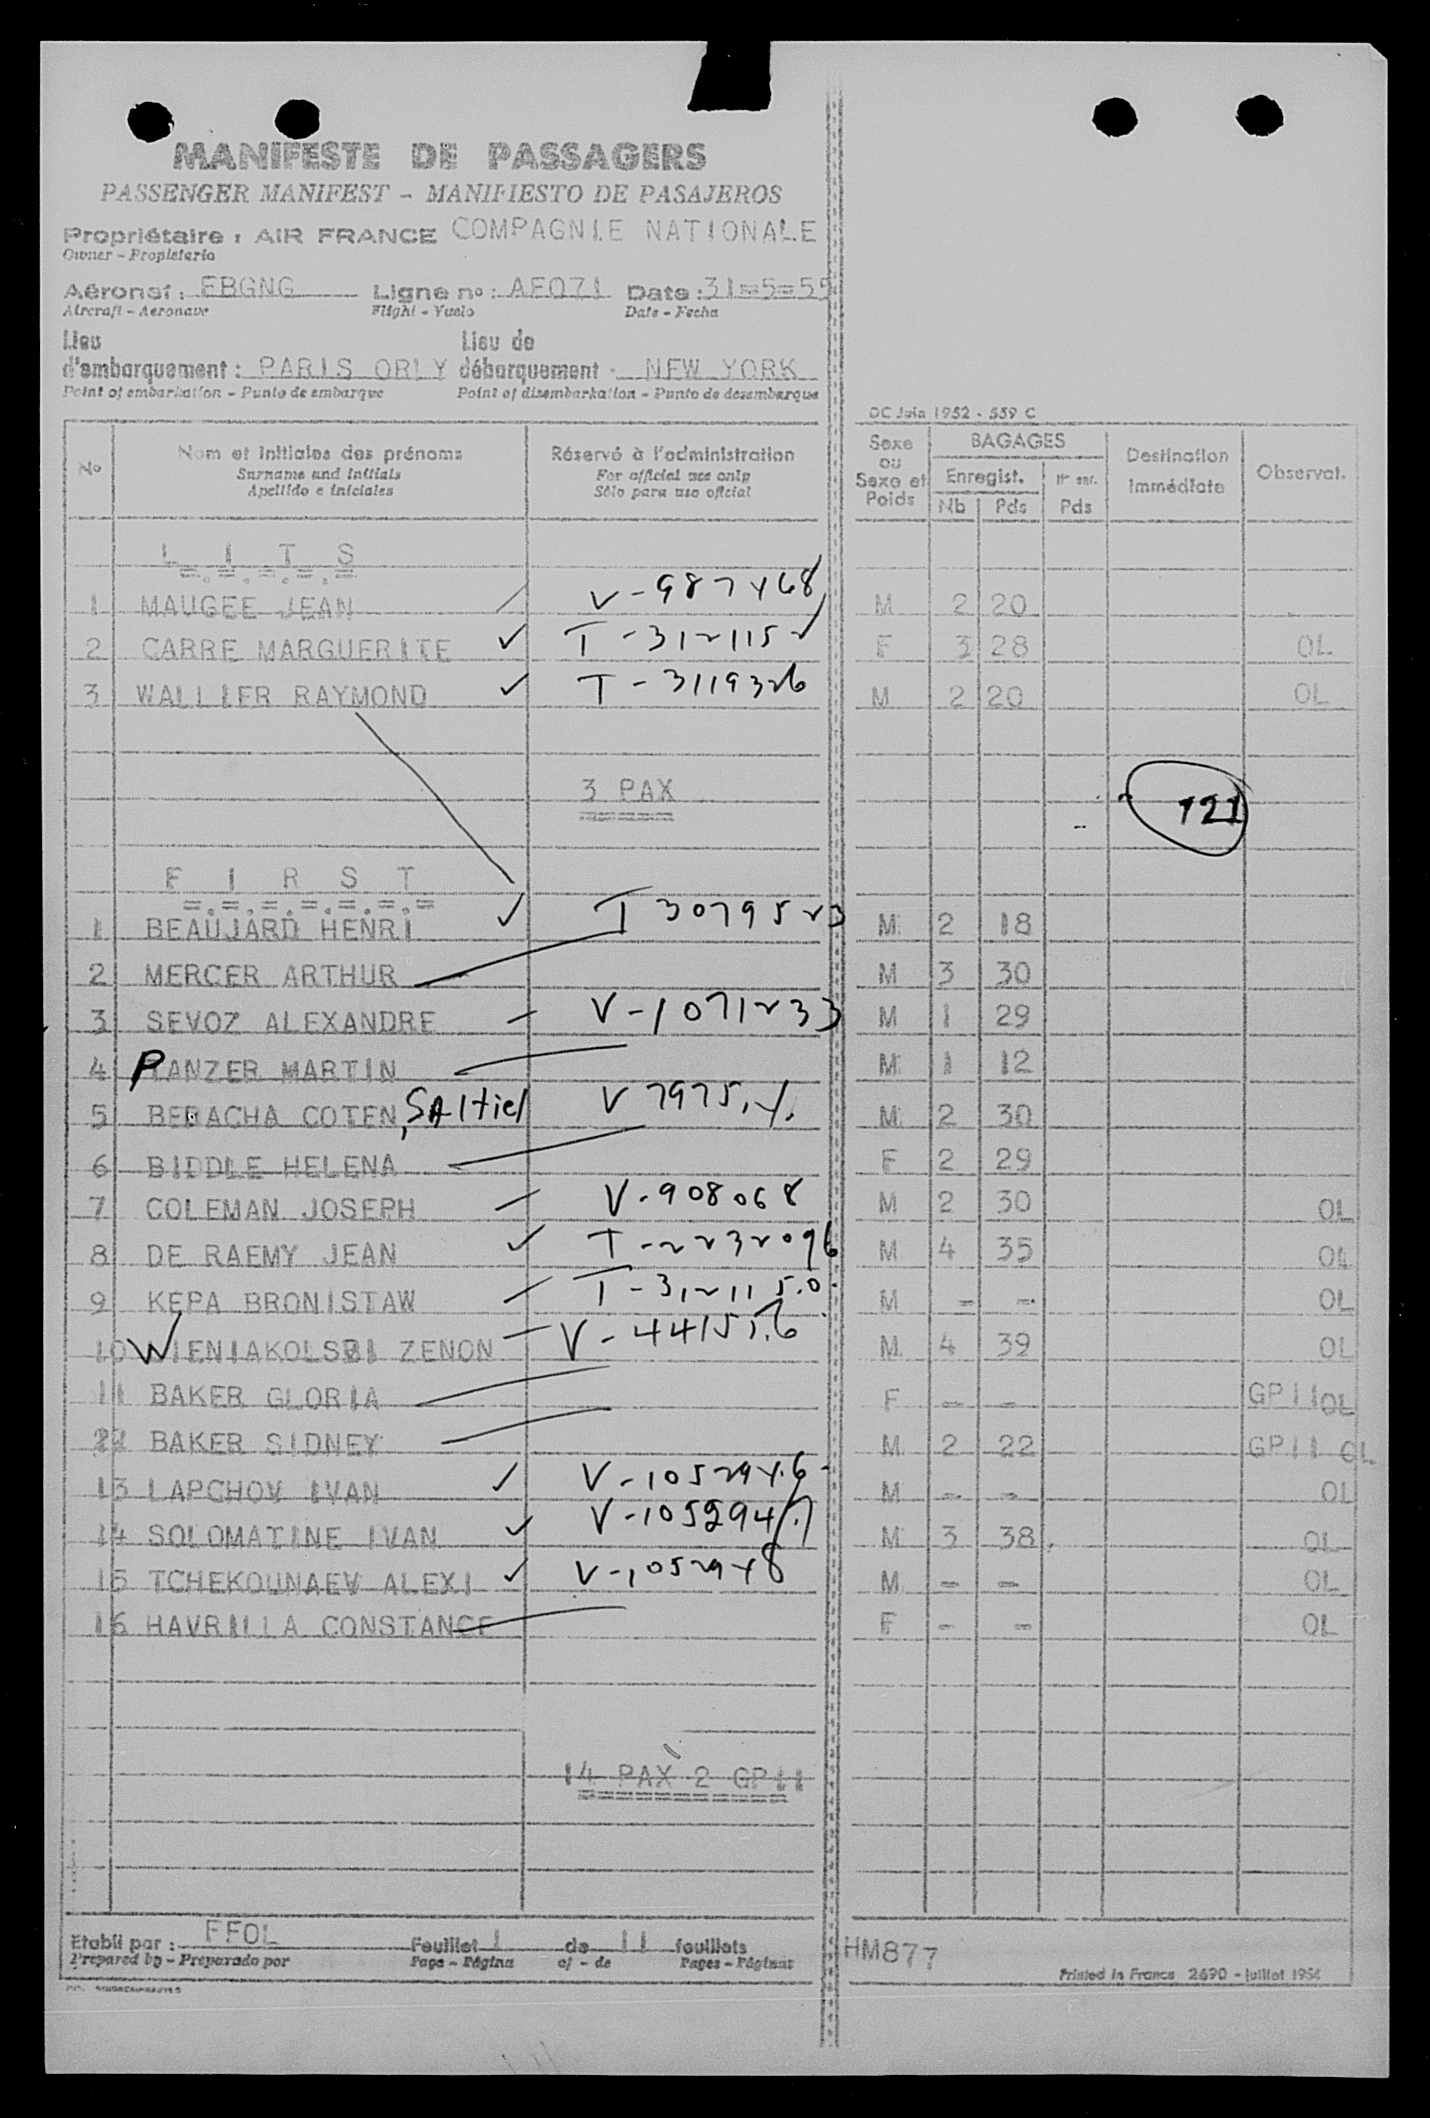 MANIFESTE DE PASSAGERS
PASSENGER MANIFEST - MANIFIESTO DE PASAJEROS
Propriétaire : AIR FRANCE COMPAGNIE NATIONALE
Owner - Propietario
Aéronef : FBGNG Ligne no : AF071 Date : 31=5=55
Aircraft - Aeronave Flight - Vuelo Date - Fecha
Lieu d'embarquement : PARIS ORLY Lieu de débarquement : NEW YORK
Point of embarkation - Punto de embarque Point of disembarkation - Punto de desembarque
OC Juin 1952 - 559 C
No Nom et initiales des prénoms Réservé à l'administration Sexe ou Sexe et Poids BAGAGES Destination immédiate Observat.
Surname and initials For official use only Enregist.
Apellido e iniciales Sólo para uso oficial Nb Pds Pds
L I T S
1 MAUGEE JEAN V-987468 M 2 20
2 CARRE MARGUERITE ✓ T-312115 ✓ F 3 28 OL
3 WALLIER RAYMOND ✓ T-3119326 M 2 20 OL
3 PAX
121
F I R S T
1 BEAUJARD HENRI ✓ T 3079523 M 2 18
2 MERCER ARTHUR M 3 30
3 SEVOZ ALEXANDRE V-1071233 M 1 29
4 PANZER MARTIN M 1 12
5 BERACHA COTEN, SAltiel V 7975 M 2 30
6 BIDDLE HELENA F 2 29
7 COLEMAN JOSEPH V-908068 M 2 30 OL
8 DE RAEMY JEAN ✓ T-2232096 M 4 35 OL
9 KEPA BRONISTAW T-312115.0 M - - OL
10 WIENIAKOLSKI ZENON V-44151.6 M 4 39 OL
11 BAKER GLORIA F - - GP11 OL
12 BAKER SIDNEY M 2 22 GP11 OL
13 LAPCHOV IVAN ✓ V-1052946 M - - OL
14 SOLOMATINE IVAN ✓ V-1052947 M 3 38 OL
15 TCHEKOUNAEV ALEXI ✓ V-1052948 M - - OL
16 HAVRILLA CONSTANCE F - - OL
14 PAX 2 GP11
Etabli par : FFOL Feuillet 1 de 11 feuillets HM877
Prepared by - Preparado por Page - Página of - de Pages - Páginas
Printed in France 2690 - juillet 1954